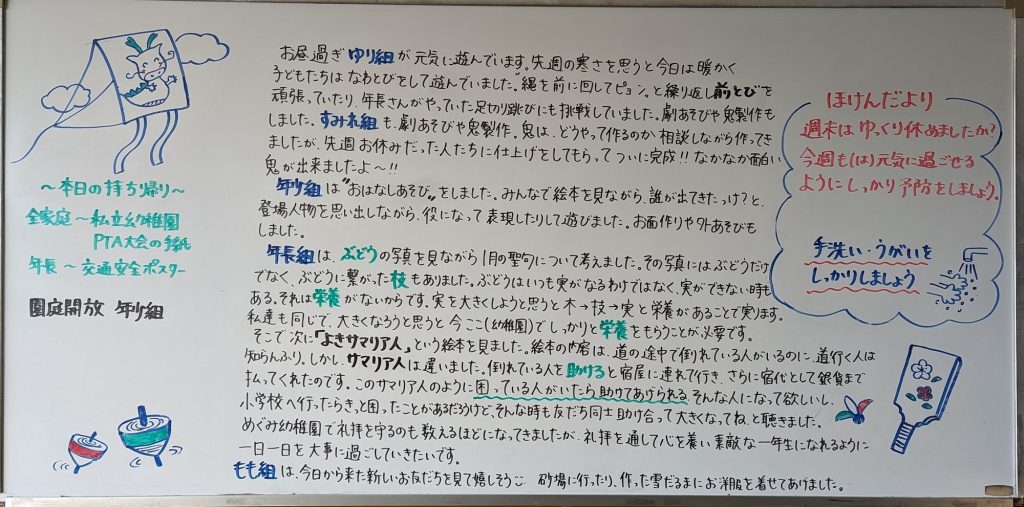 お昼過ぎゆり組が元気に遊んでいます。先週の寒さを思うと今日は暖かく
子どもたちはなわとびをして遊んでいました。"縄を前に回してピョン。と繰り返し前とびを
頑張っていたり、年長さんがやっていた足切り跳びにも挑戦していました。劇あそびや鬼製作も
しました。すみれ組も、劇あそびや鬼製作。鬼は、どうやって作るのか相談しながら作ってき
ましたが、先週お休みだった人たちに仕上げをしてもらってついに完成!!なかなか面白い
鬼が出来ましたよ〜!!
年少組は"おはなしあそび"をしました。みんなで絵本を見ながら、誰が出てきたっけ?と、
登場人物を思い出しながら、役になって表現したりして遊びました。お面作りや外あそびも
しました。
年長組は、ぶどうの写真を見ながら1月の聖句について考えました。その写真にはぶどうだけ
でなく、ぶどうに繋がった枝もありました。ぶどうはいつも実がなるわけではなく、実ができない時も
ある。それは栄養がないからです。実を大きくしようと思うと木→枝→実と栄養があることで実ります。
私達も同じで、大きくなろうと思うと今ここ(幼稚園)でしっかりと栄養をもらうことが必要です。
そこで次に「よきサマリア人」という絵本を見ました。絵本の内容は、道の途中で倒れている人がいるのに、道行く人は
知らんふり。しかし、サマリア人は違いました。倒れている人を助けると宿屋に連れて行き、さらに宿代として銀貨まで
払ってくれたのです。このサマリア人のように困っている人がいたら助けてあげられるそんな人になって欲しいし、
小学校へ行ったらきっと困ったことがあるだろうけど、そんな時も友だち同士助け合って大きくなってね、と聴きました。
めぐみ幼稚園で礼拝を守るのも数えるほどになってきましたが、礼拝を通して心を養い素敵な一年生になれるように
一日一日を大事に過ごしていきたいです。
もも組は、今日から来た新しいお友だちを見て嬉しそう 砂場に行ったり、作った雪だるまにお洋服を着せてあげました。
〜本日の持ち帰り〜
全家庭〜私立幼稚園
PTA大会の手紙
年長〜交通安全ポスター
園庭開放 年少組
ほけんだより
週末はゆっくり休めましたか?
今週も(は)元気に過ごせる
ようにしっかり予防をしましょう。
手洗い・うがいを
しっかりしましょう